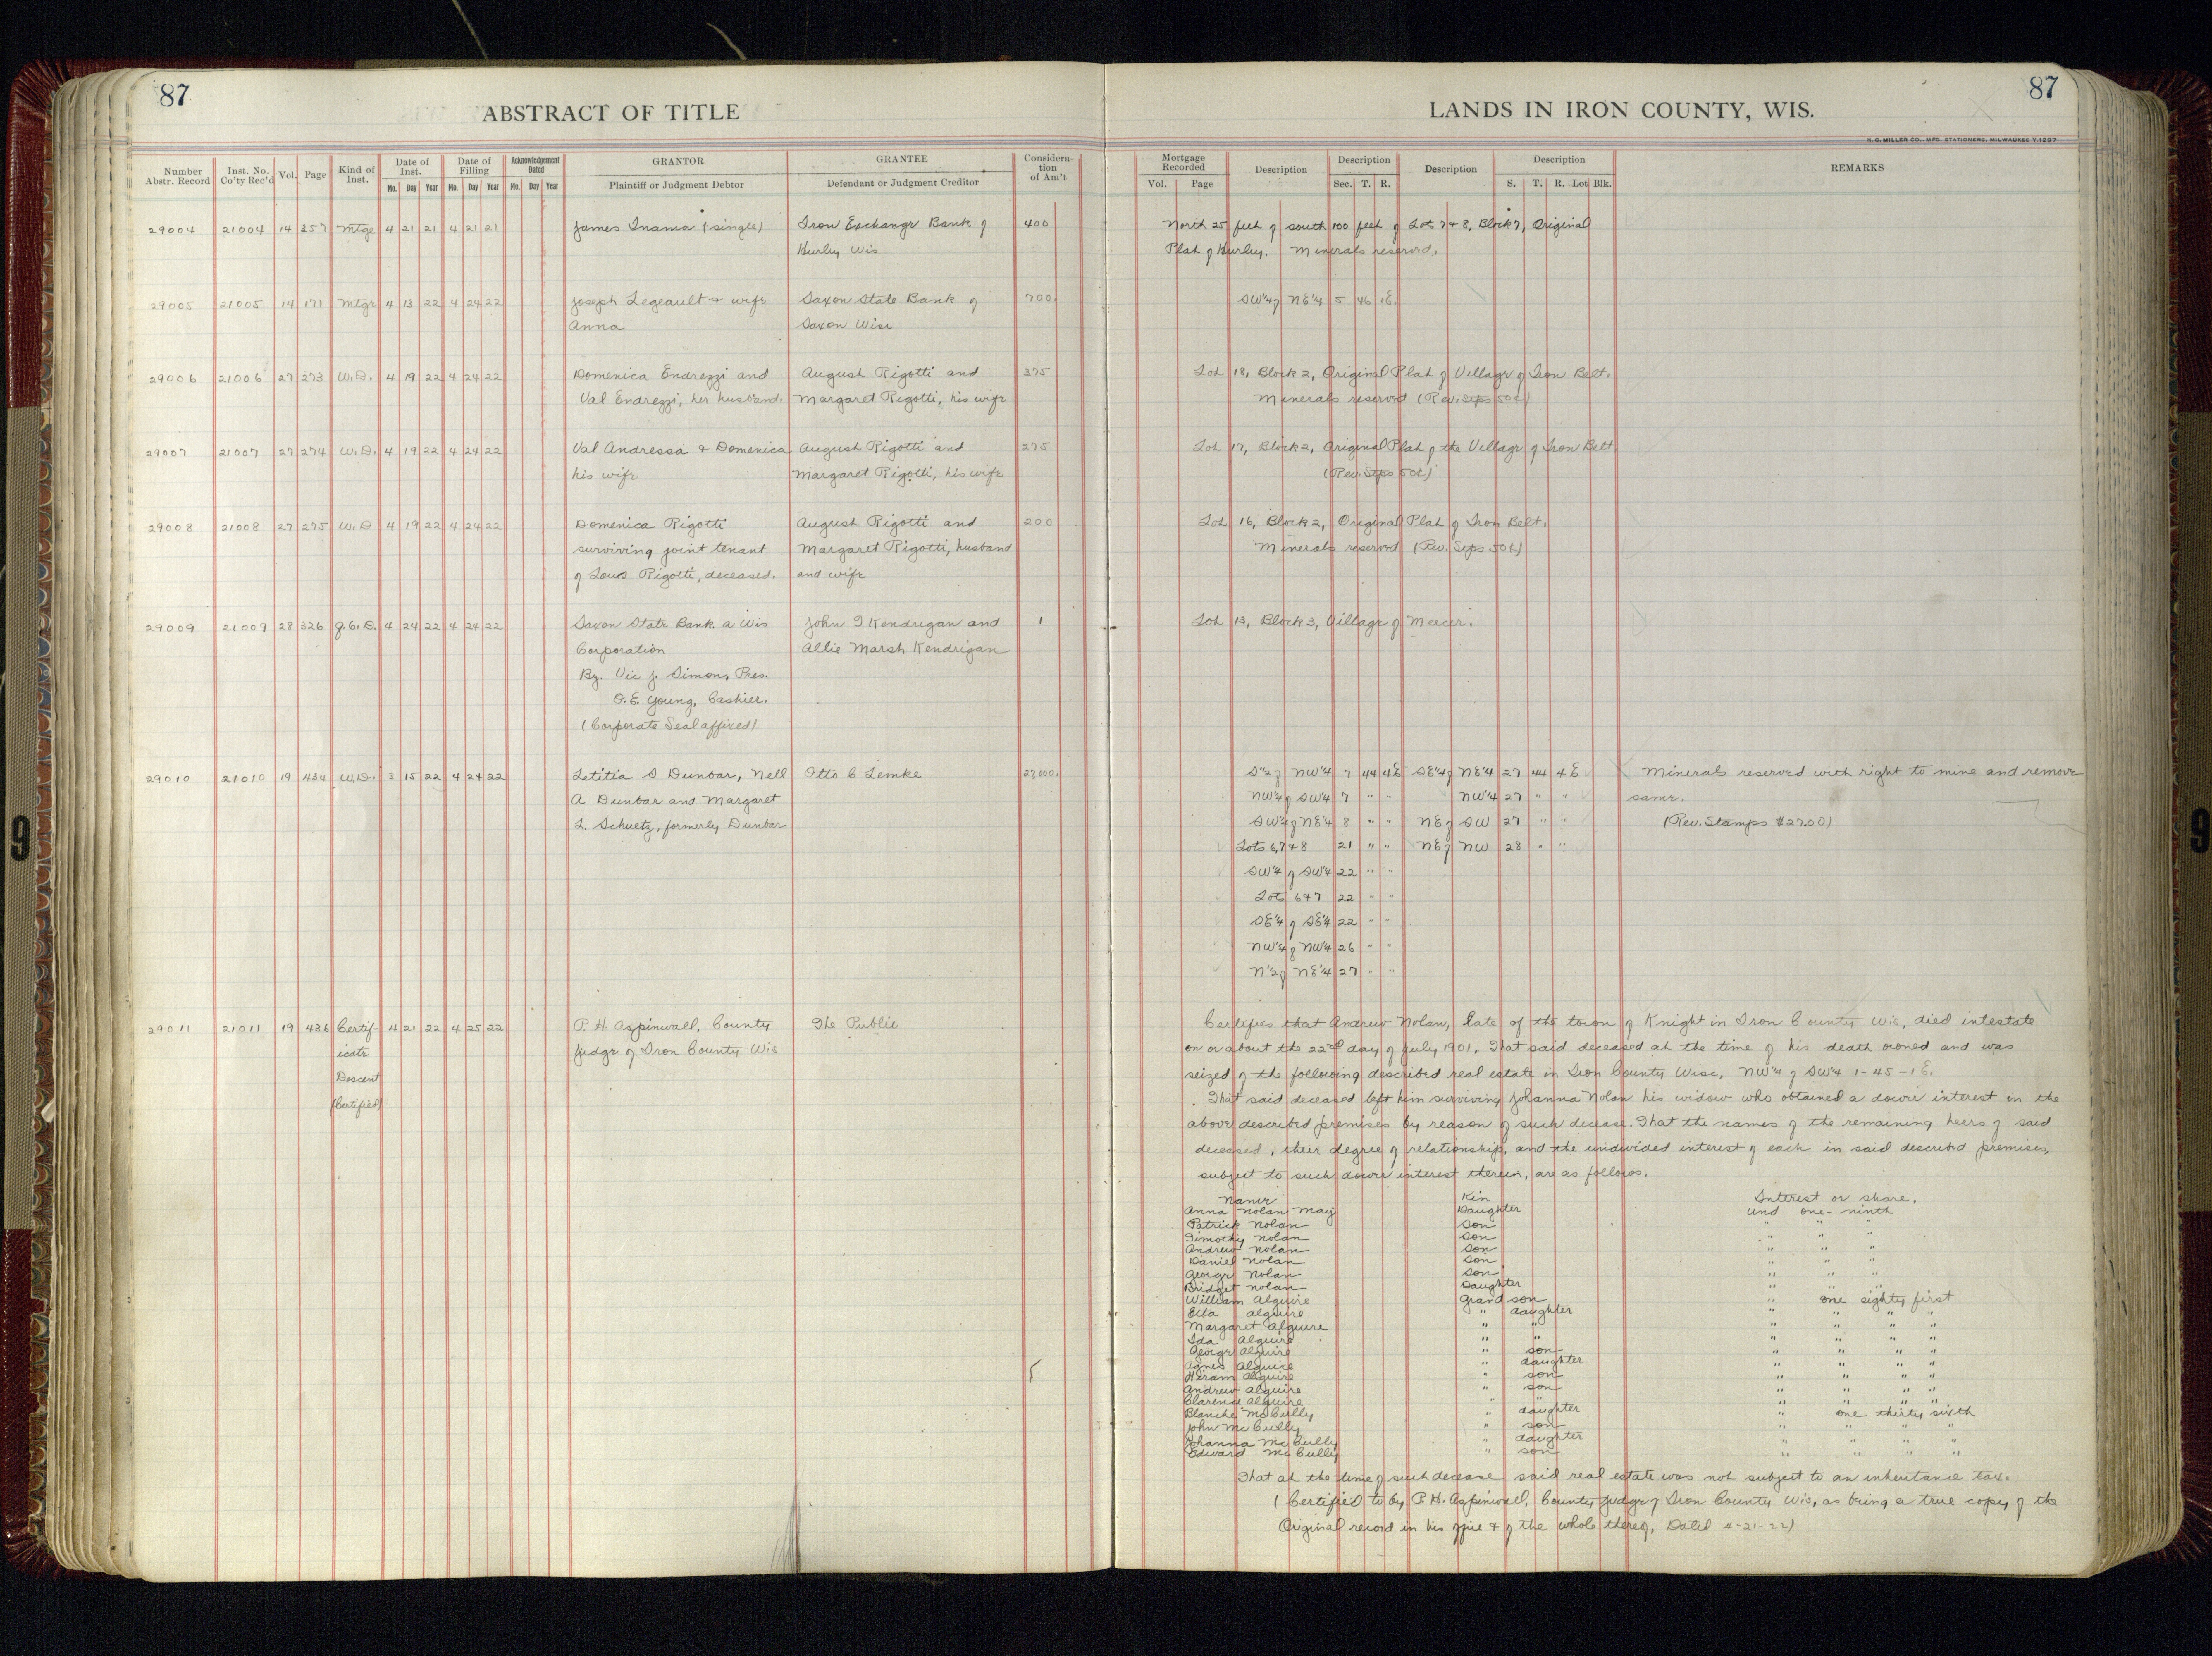 87
ABSTRACT OF TITLE
Number Abstr. Record | Inst. No. Co'ty Rec'd | Vol. | Page | Kind of Inst. | Date of Inst. Mo. Day Year | Date of Filling Mo. Day Year | Acknowledgement Dated Mo. Day Year | GRANTOR Plaintiff or Judgment Debtor | GRANTEE Defendant or Judgment Creditor | Consideration of Am't
29004 21004 14 357 Mtge 4 21 21 4 21 21 James Inama (single) Iron Exchange Bank of 400
Hurley Wis
29005 21005 14 171 Mtge 4 13 22 4 24 22 Joseph Legeault & wife Saxon State Bank of 700.
Anna Saxon Wise
29006 21006 27 273 W.D. 4 19 22 4 24 22 Domenica Endrezzi and August Rigotti and 375
Val Endrezzi, her husband. Margaret Rigotti, his wife
29007 21007 27 274 W.D. 4 19 22 4 24 22 Val Andressa & Domenica August Rigotti and 275
his wife Margaret Rigotti, his wife
29008 21008 27 275 W.D 4 19 22 4 24 22 Domenica Rigotti August Rigotti and 200
surviving joint tenant Margaret Rigotti, husband
of Louis Rigotti, deceased. and wife
29009 21009 28 326 Q.C.D. 4 24 22 4 24 22 Saxon State Bank a Wis John I Kendrigan and 1
Corporation Allie Marsh Kendrigan
By. Vic J. Simon, Pres.
O.E. Young, Cashier.
(Corporate Seal affixed)
29010 21010 19 434 W.D. 3 15 22 4 24 22 Letitia S Dunbar, Nell Otto C Lemke 27,000.
A Dunbar and Margaret
L. Schuetz, formerly Dunbar
29011 21011 19 436 Certif- 4 21 22 4 25 22 P. H Aspinwall, County The Public
icate Judge of Iron County Wis
Descent
(Certified)
87
LANDS IN IRON COUNTY, WIS.
H. C. MILLER CO., MFG. STATIONERS, MILWAUKEE Y-1297
Mortgage Recorded Vol. Page | Description | Description Sec. T. R. | Description | Description S. T. R. Lot Blk. | REMARKS
North 25 feet of south 100 feet of Lots 7 & 8, Block 7, Original
Plat of Hurley. Minerals reserved.
SW¼ of NE¼ 5 46 1E.
Lot 18, Block 2, Original Plat of Village of Iron Belt.
Minerals reserved (Rev. Stps 50¢)
Lot 17, Block 2, Original Plat of the Village of Iron Belt
(Rev. Stps 50¢)
Lot 16, Block 2, Original Plat of Iron Belt.
Minerals reserved (Rev. Stps 50¢)
Lot 13, Block 3, Village of Mercer.
S½ of NW¼ 7 44 4E SE¼ of NE¼ 27 44 4E Minerals reserved with right to mine and remove
NW¼ of SW¼ 7 " " NW¼ 27 " " same.
SW¼ of NE¼ 8 " " NE of SW 27 " " (Rev. Stamps $27.00)
Lots 6,7 & 8 21 " " NE of NW 28 " "
SW¼ of SW¼ 22 " "
Lots 6 & 7 22 " "
SE¼ of SE¼ 22 " "
NW¼ of NW¼ 26 " "
N½ of NE¼ 27 " "
Certifies that Andrew Nolan, late of the town of Knight in Iron County Wis, died intestate
on or about the 22nd day of July 1901. That said deceased at the time of his death owned and was
seized of the following described real estate in Iron County Wisc. NW¼ of SW¼ 1-45-1E.
That said deceased left him surviving Johanna Nolan his widow who obtained a dower interest in the
above described premises by reason of such decease. That the names of the remaining heirs of said
deceased, their degree of relationship, and the undivided interest of each in said described premises,
subject to such dower interest therein, are as follows.
Name Kin Interest or share.
Anna Nolan May Daughter und one-ninth
Patrick Nolan Son " " "
Timothy Nolan Son " " "
Andrew Nolan Son " " "
Daniel Nolan Son " " "
George Nolan Son " " "
Bridget Nolan Daughter " " "
William Alguire Grand son " one eighty first
Etta Alguire " daughter " " " "
Margaret Alguire " " " " " "
Ida Alguire " " " " " "
George Alguire " son " " " "
Agnes Alguire " daughter " " " "
Hiram Alguire " son " " " "
Andrew Alguire " son " " " "
Clarence Alguire " " " " " "
Blanche McCully " daughter " one thirty sixth
John McCully " son " " " "
Johanna McCully " daughter " " " "
Edward McCully " son " " " "
That at the time of such decease said real estate was not subject to an inheritance tax.
(Certified to by P. H. Aspinwall, County Judge of Iron County Wis, as being a true copy of the
Original record in his office & of the whole thereof, Dated 4-21-22)
9
9